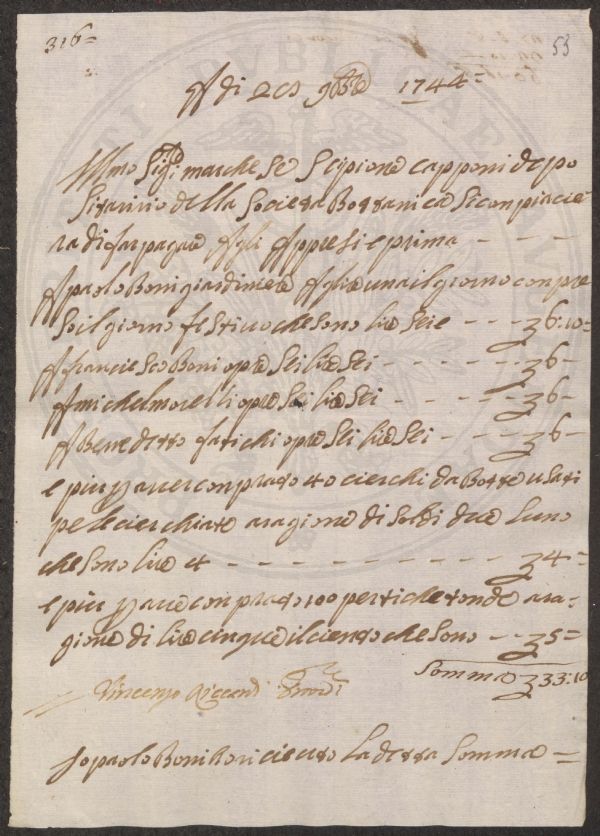 316=
53
A di 20 9bre 1744=
Illmo Sigre marchese Scipione Capponi depo
sitario della Societa Bottanica si conpiacie
ra di far pagare Agli Appresi e prima - - -
A paolo Boni giardiniere A lire una il giorno conpre
so il giorno festivo che sono lire seie - - - 36:10=
A franciesco Boni opre sei lire sei - - - - - - - 36-
A michel morelli opre sei lire sei - - - - - 36-
A Benedetto fatichi opre sei lire sei - - - - 36-
e piu p aver conprato 40 cierchi da Botte usati
pe le cierchiate a ragione di soldi due l'uno
che sono lire 4 - - - - - - - - - - - 34=
e piu p aver conprato 100 pertiche tonde a ra=
gione di lire cinque il ciento che sono - - - 35=
Somma 333:10
Vincenzo
Io paolo Boni o ricieuto la detta Somma =